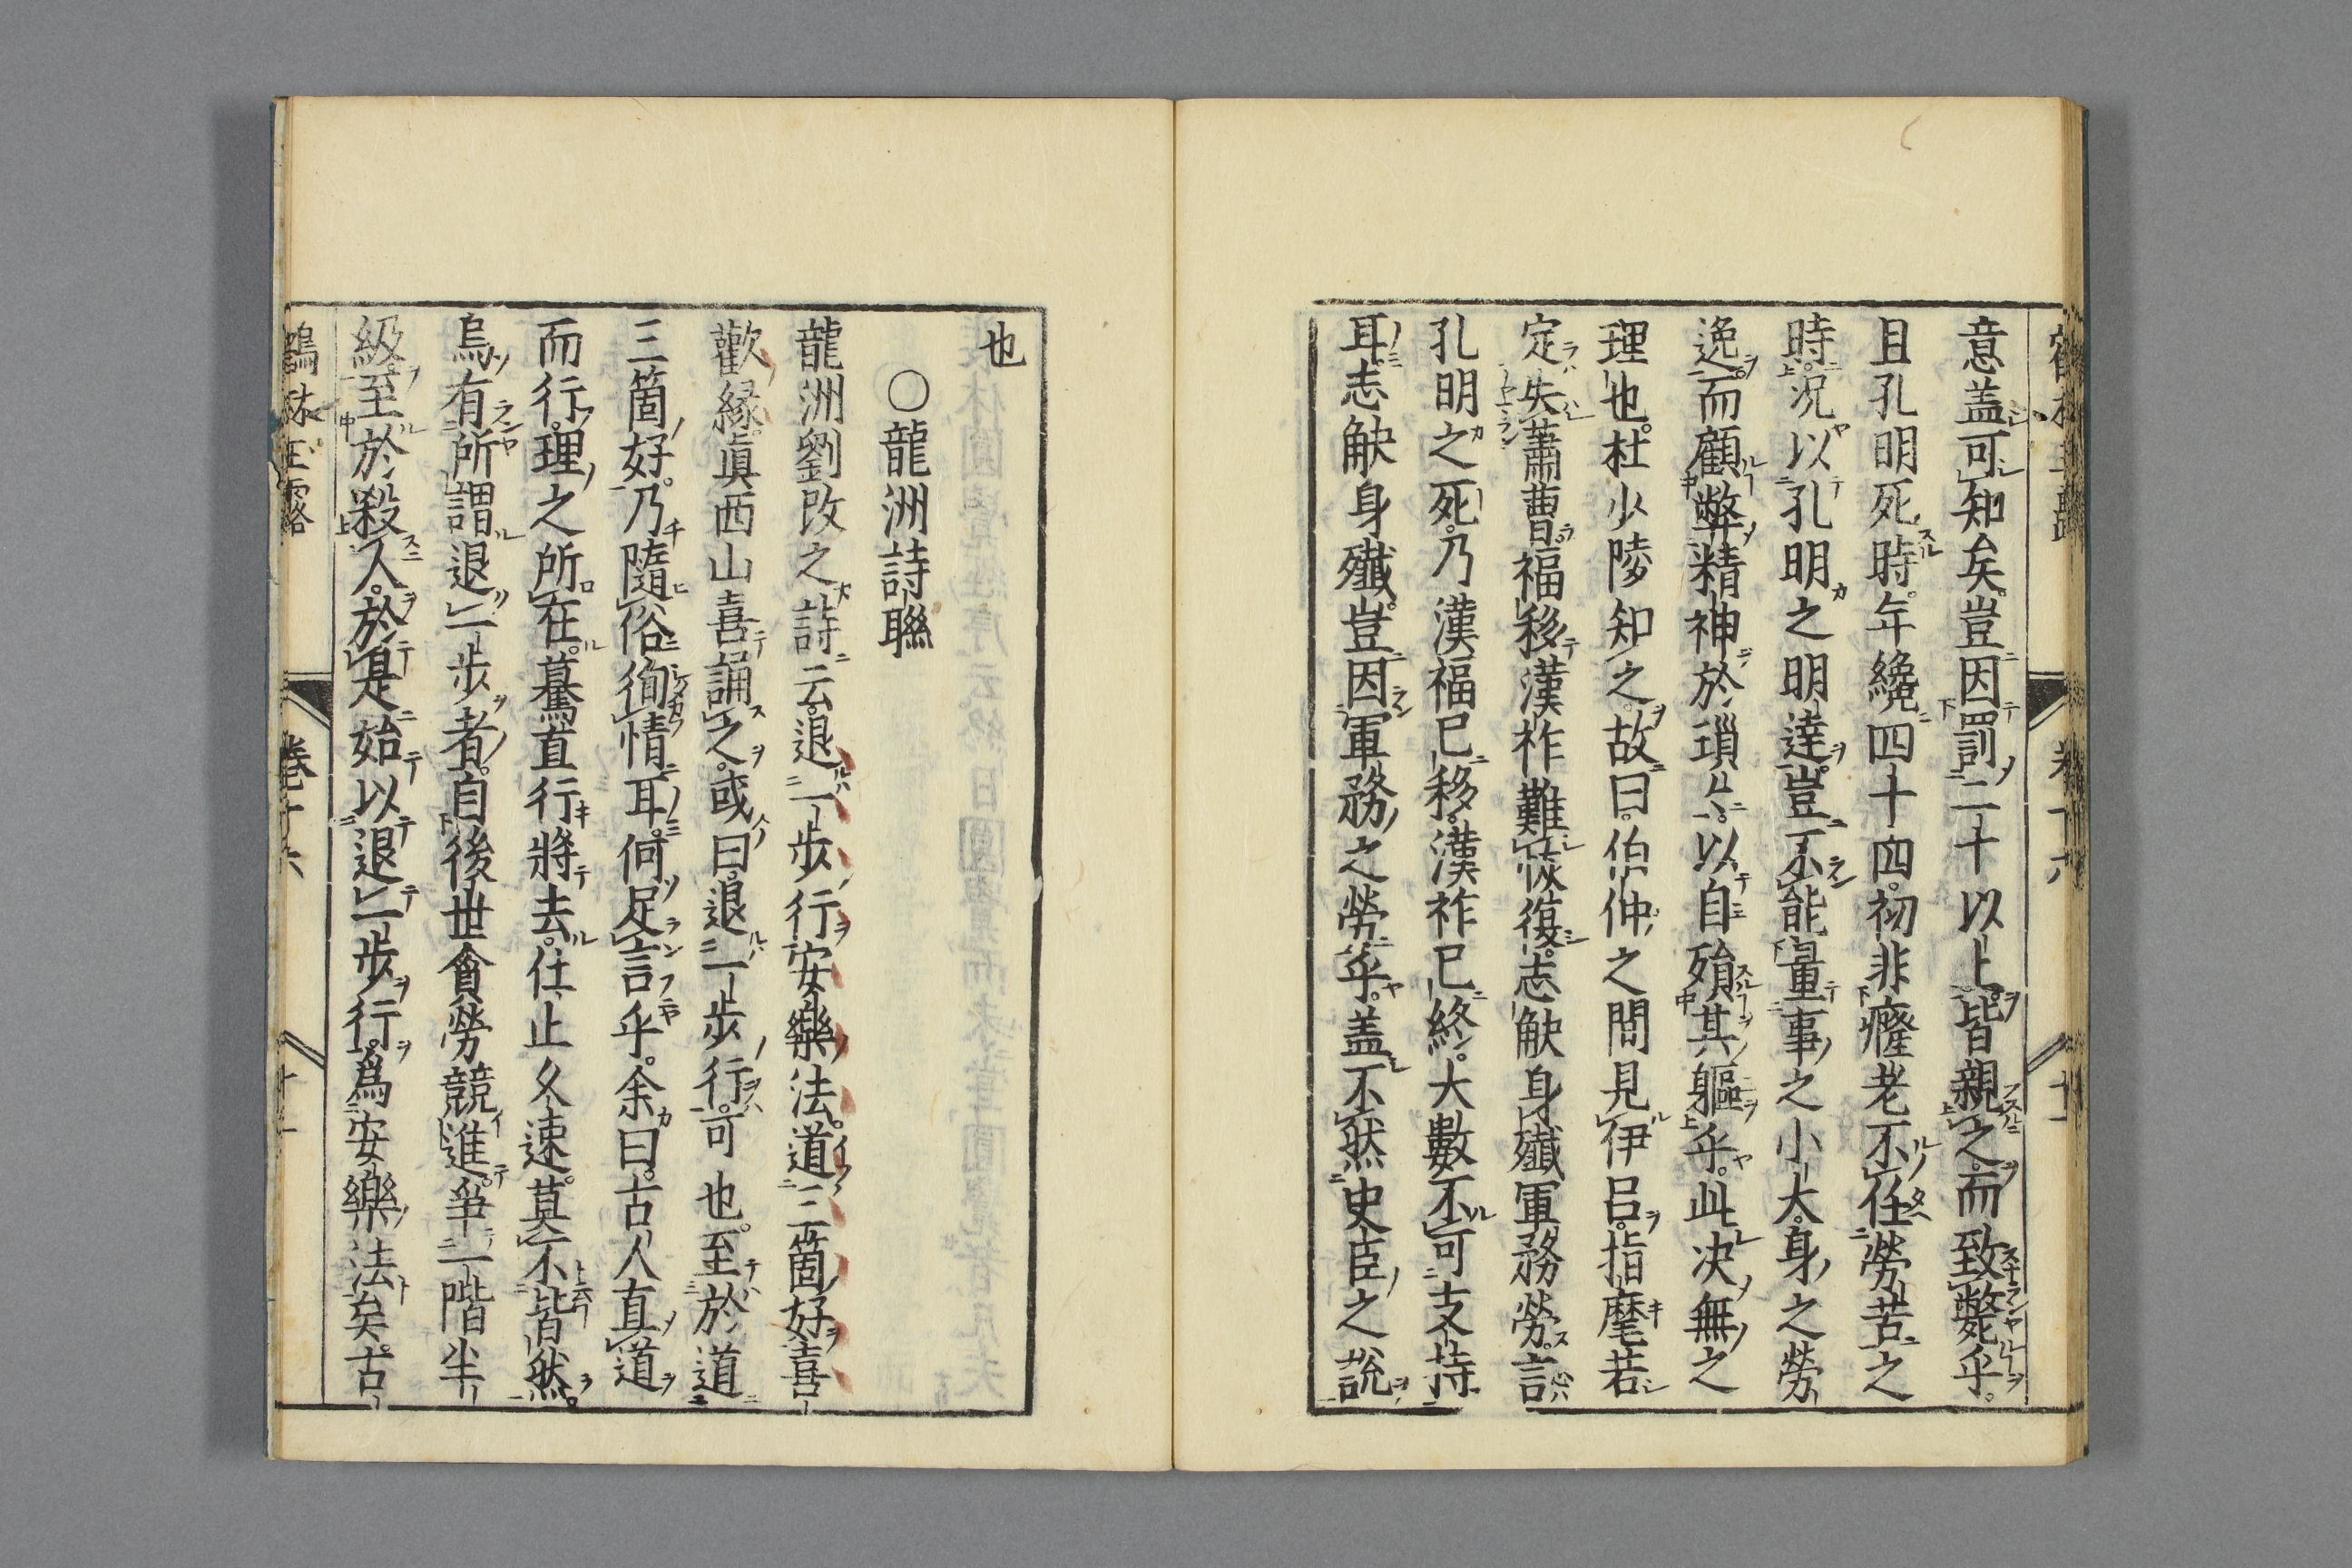 意盖可知矣豈因罰二十以上皆親之而致斃乎
且孔明死時年纔四十四初非癃老不任勞苦之
時况以孔明之明達豈不能量事之小大身之勞
逸而顧弊精神於瑣〻以自殞其軀乎此决無之
理也杜少陵知之故曰伯仲之間見伊呂指麾若
定失蕭曹福移漢祚難恢復志觖身殲軍務勞言
孔明之死乃漢福已移漢祚已終大數不可支持
耳志觖身殲豈因軍務之勞乎盖不然史臣之說
也
〇龍洲詩聯
龍洲劉改之詩云退一步行安樂法道三箇好喜
歡緣眞西山喜誦之或曰退一步行可也至於道
三箇好乃隨俗徇情耳何足言乎余曰古人直道
而行理之所在驀直行將去仕止久速莫不皆然
烏有所謂退一步者自後世貪勞競進爭一階半
級至於殺人於是始以退一步行爲安樂法矣古
鶴林玉露
卷十六
十一